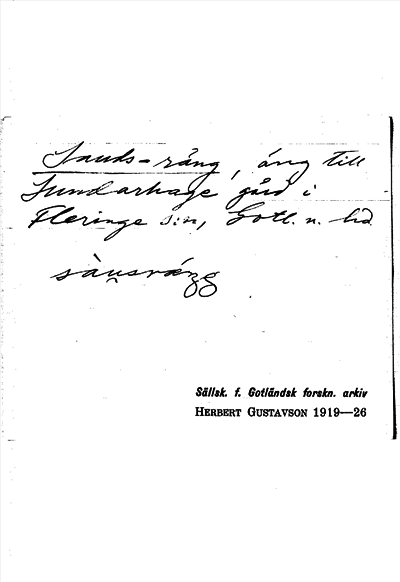 Sauds-räng, äng till
Sundarhage gård i
Fleringe s:n, Gotl. n. hd
sàu̯sráŋg
Sällsk. f. Gotländsk forskn. arkiv
HERBERT GUSTAVSON 1919—26